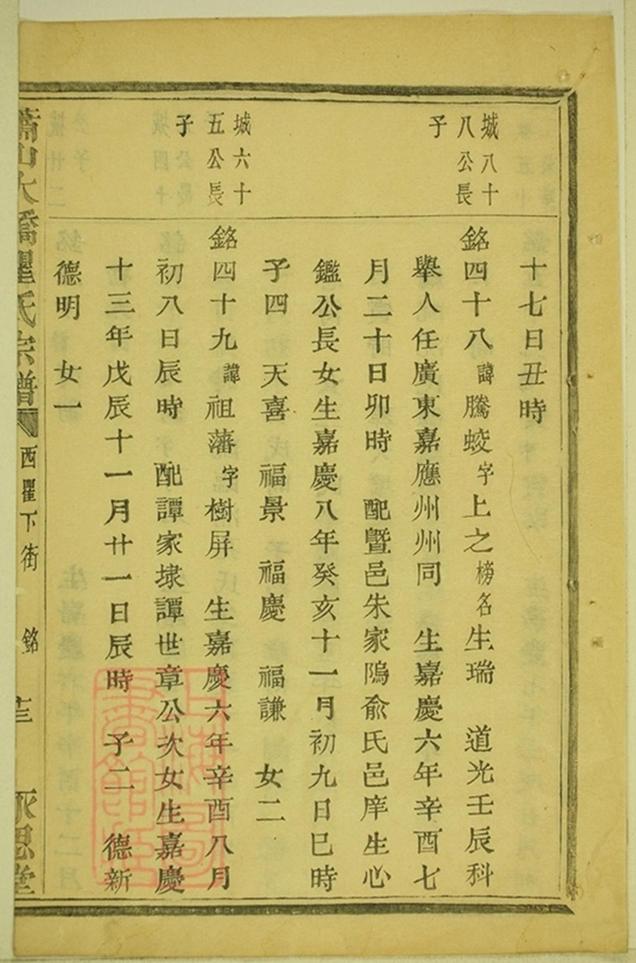 十七日丑時
城八十
八公長
子
銘四十八諱騰蛟字上之榜名生瑞 道光壬辰科
舉人任廣東嘉應州州同 生嘉慶六年辛酉七
月二十日卯時 配暨邑朱家隖俞氏邑庠生心
鑑公長女生嘉慶八年癸亥十一月初九日巳時
子四 天喜 福景 福慶 福謙 女二
城六十
五公長
子
銘四十九諱祖藩字樹屏 生嘉慶六年辛酉八月
初八日辰時 配譚家埭譚世章公次女生嘉慶
十三年戊辰十一月廿一日辰時 子二 德新
德明 女一
蕭山大橋瞿氏宗譜
西瞿下街 銘
永思堂